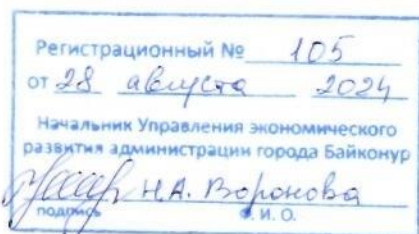 Регистрационный № 105
от 28 августа 2024
Начальник Управления экономического
развития администрации города Байконур
Н.А. Воронова
подпись Ф. И. О.